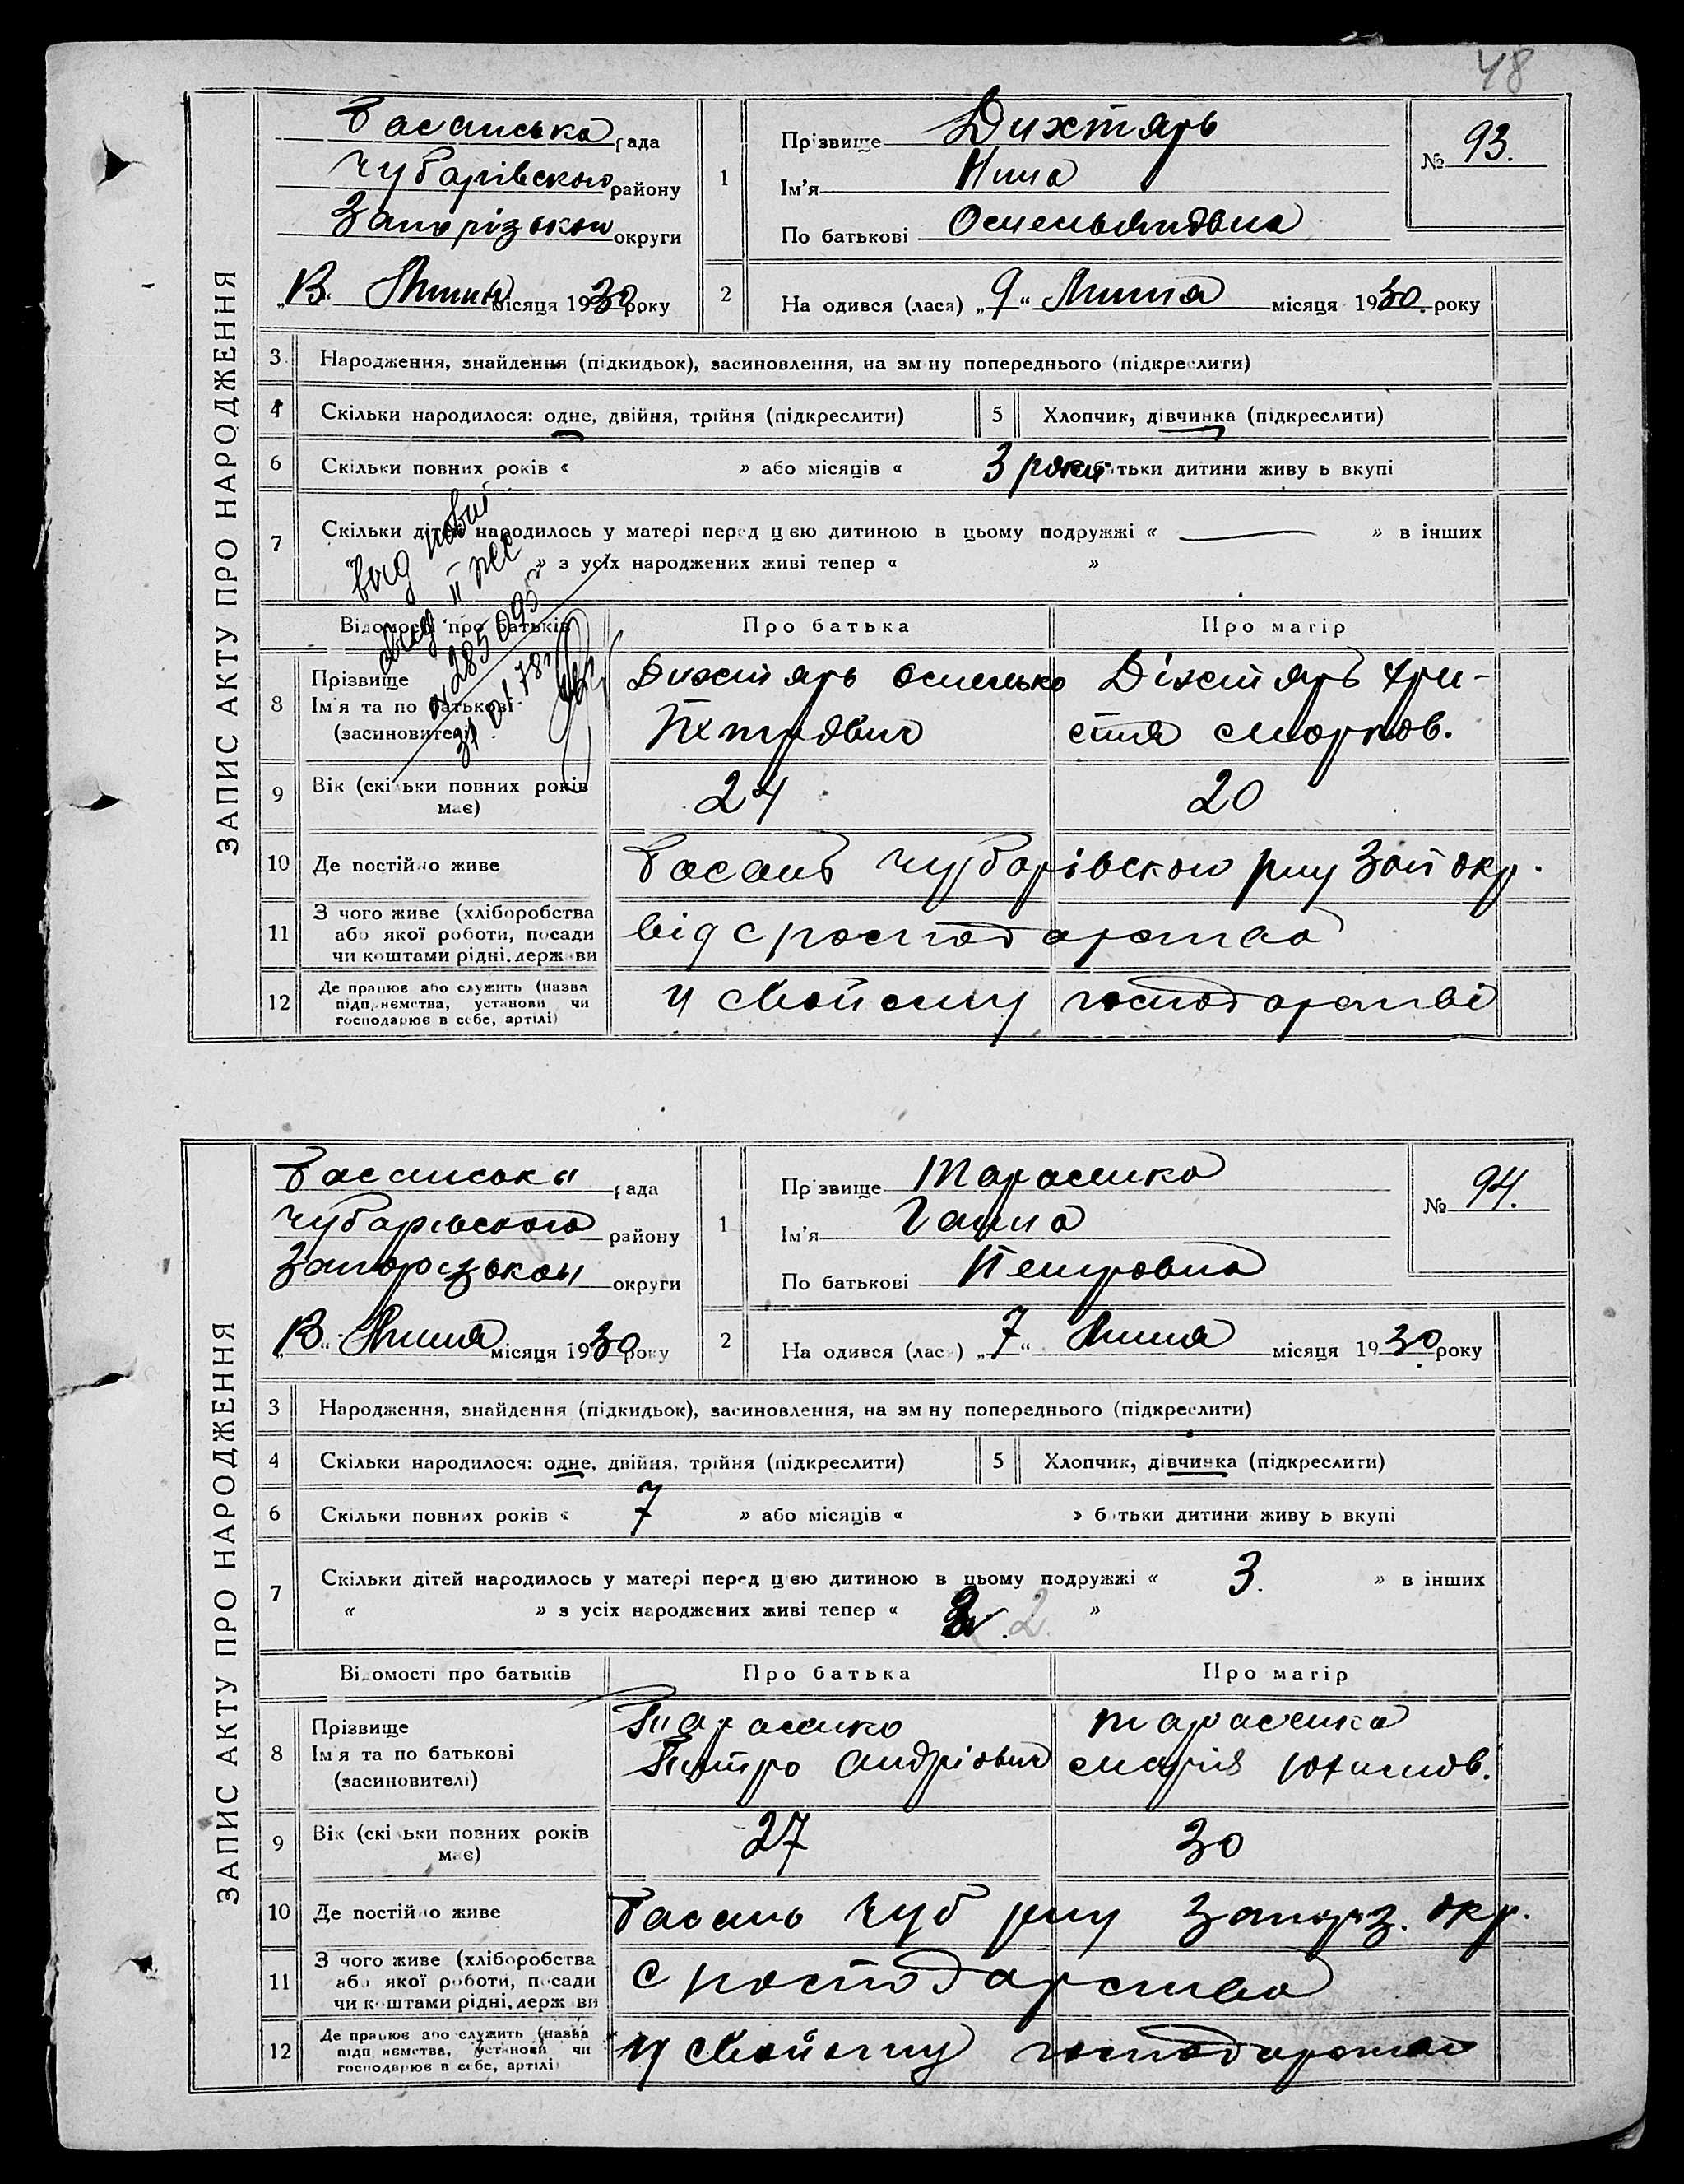 48
ЗАПИС АКТУ ПРО НАРОДЖЕННЯ
Басанська рада
Чубарівського району
Запорізькои округи
"13" Липня місяця 1930 року
1
Прізвище Дихтярь
Ім'я Нина
По батькові Омельяновна
№ 93.
2 На одився (лася) „9“ Липня місяця 1930. року
3 Народження, знайдення (підкидьок), засиновлення, на зм ну попереднього (підкреслити)
4 Скільки народилося: одне, двійня, трійня (підкреслити)
5 Хлопчик, дівчинка (підкреслити)
6 Скільки повних років « » або місяців « 3 роки батьки дитини живу ь вкупі
7 Скільки дітей народилось у матері перед цією дитиною в цьому подружжі « — » в інших
« » з усіх народжених живі тепер « »
285095
31 01 78
Відомості про батьків Про батька Про матір
8 Прізвище
Ім'я та по батькові
(засновителі)
Дихтярь Омелько
Петрович
Діхтярь Хри-
стя Марков.
9 Вік (скільки повних років
має)
24 20
10 Де постійно живе Басань Чубарівского рну Зап окр.
11 З чого живе (хліборобства
або якої роботи, посади
чи коштами рідні, держави
від с господарства
12 Де працює або служить (назва
підприємства, установи чи
господарює в себе, артілі)
у свойому господарстві
ЗАПИС АКТУ ПРО НАРОДЖЕННЯ
Басанська рада
Чубарівського району
Запорізькои округи
"13" Липня місяця 1930 року
1
Прізвище Тарасенко
Ім'я Ганна
По батькові Петровна
№ 94.
2 На одився (лас ) „7“ Липня місяця 1930. року
3 Народження, знайдення (підкидьок), засиновлення, на зм ну попереднього (підкреслити)
4 Скільки народилося: одне, двійня, трійня (підкреслити)
5 Хлопчик, дівчинка (підкреслити)
6 Скільки повних років « 7 » або місяців « » б тьки дитини живу ь вкупі
7 Скільки дітей народилось у матері перед цією дитиною в цьому подружжі « 3. » в інших
« » з усіх народжених живі тепер « 2. 2. »
Відомості про батьків Про батька Про матір
8 Прізвище
Ім'я та по батькові
(засиновителі)
Тарасенко
Петро Андріович
Тарасенка
Марія Юхимов.
9 Вік (скільки повних років
має)
27 30
10 Де постійно живе Басань Чуб рну Запоріз. окр.
11 З чого живе (хліборобства
або якої роботи, посади
чи коштами рідні, держави
с господарства
12 Де працює або служить (назва
підприємства, установи чи
господарює в себе, артілі)
у свойому господарстві